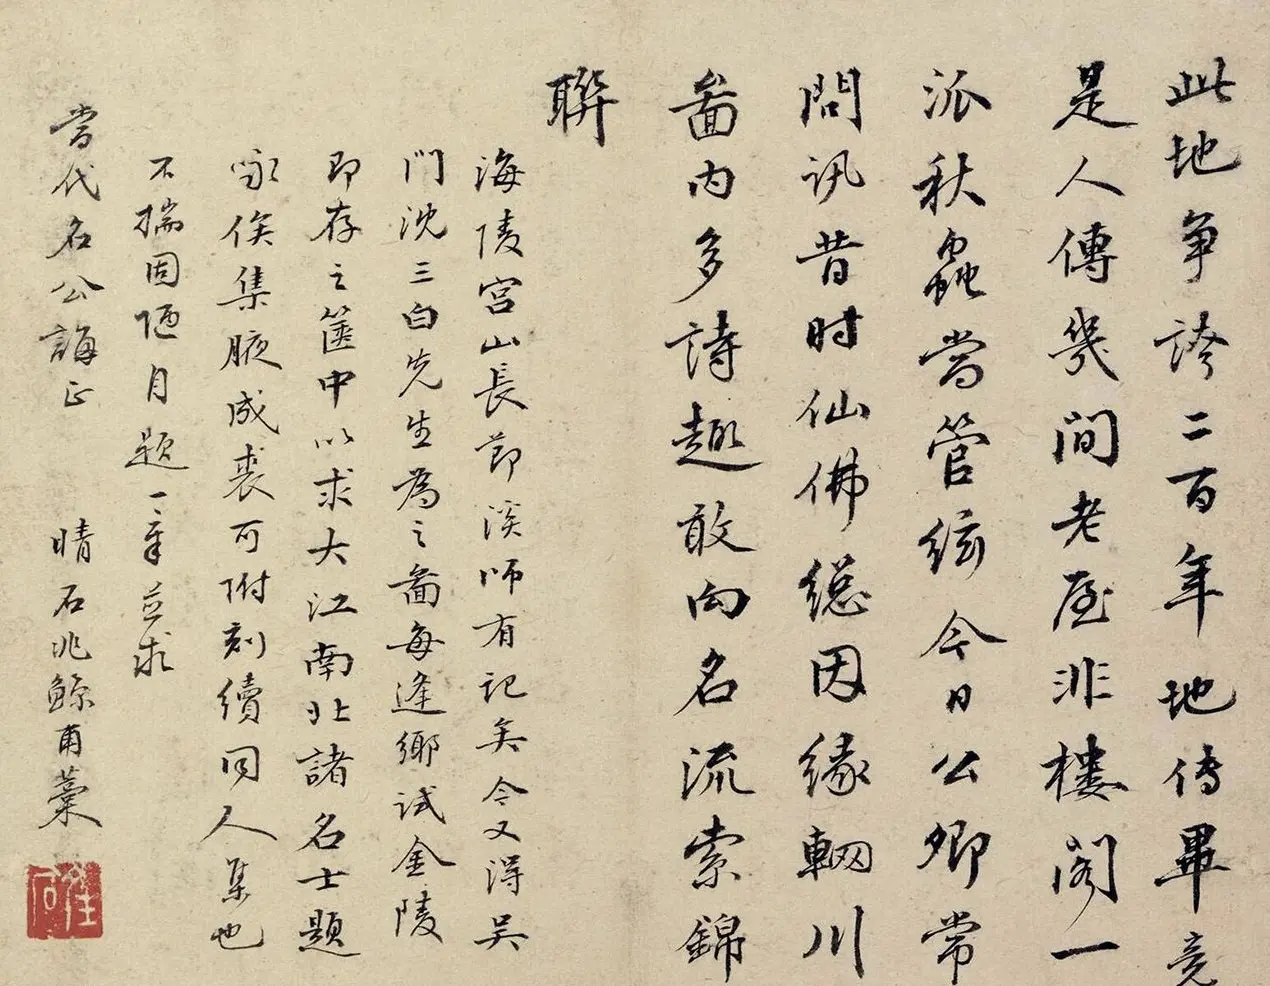 此地争誇二百年地傳畢竟
是人傳幾間老屋非樓閣一
派秋蟲當管絃今日公卿常
問訊昔时仙佛總因緣輞川
啚内多詩趣敢向名流索錦
聨
海陵宫山長節溪師有記矣今又得吴
門沈三白先生為之啚每逢鄉试金陵
即存之篋中以求大江南北諸名士題
咏俟集腋成裘可附刻續同人集也
不揣固陋月題一章並求
當代名公誨正 晴石兆鯨甫藁